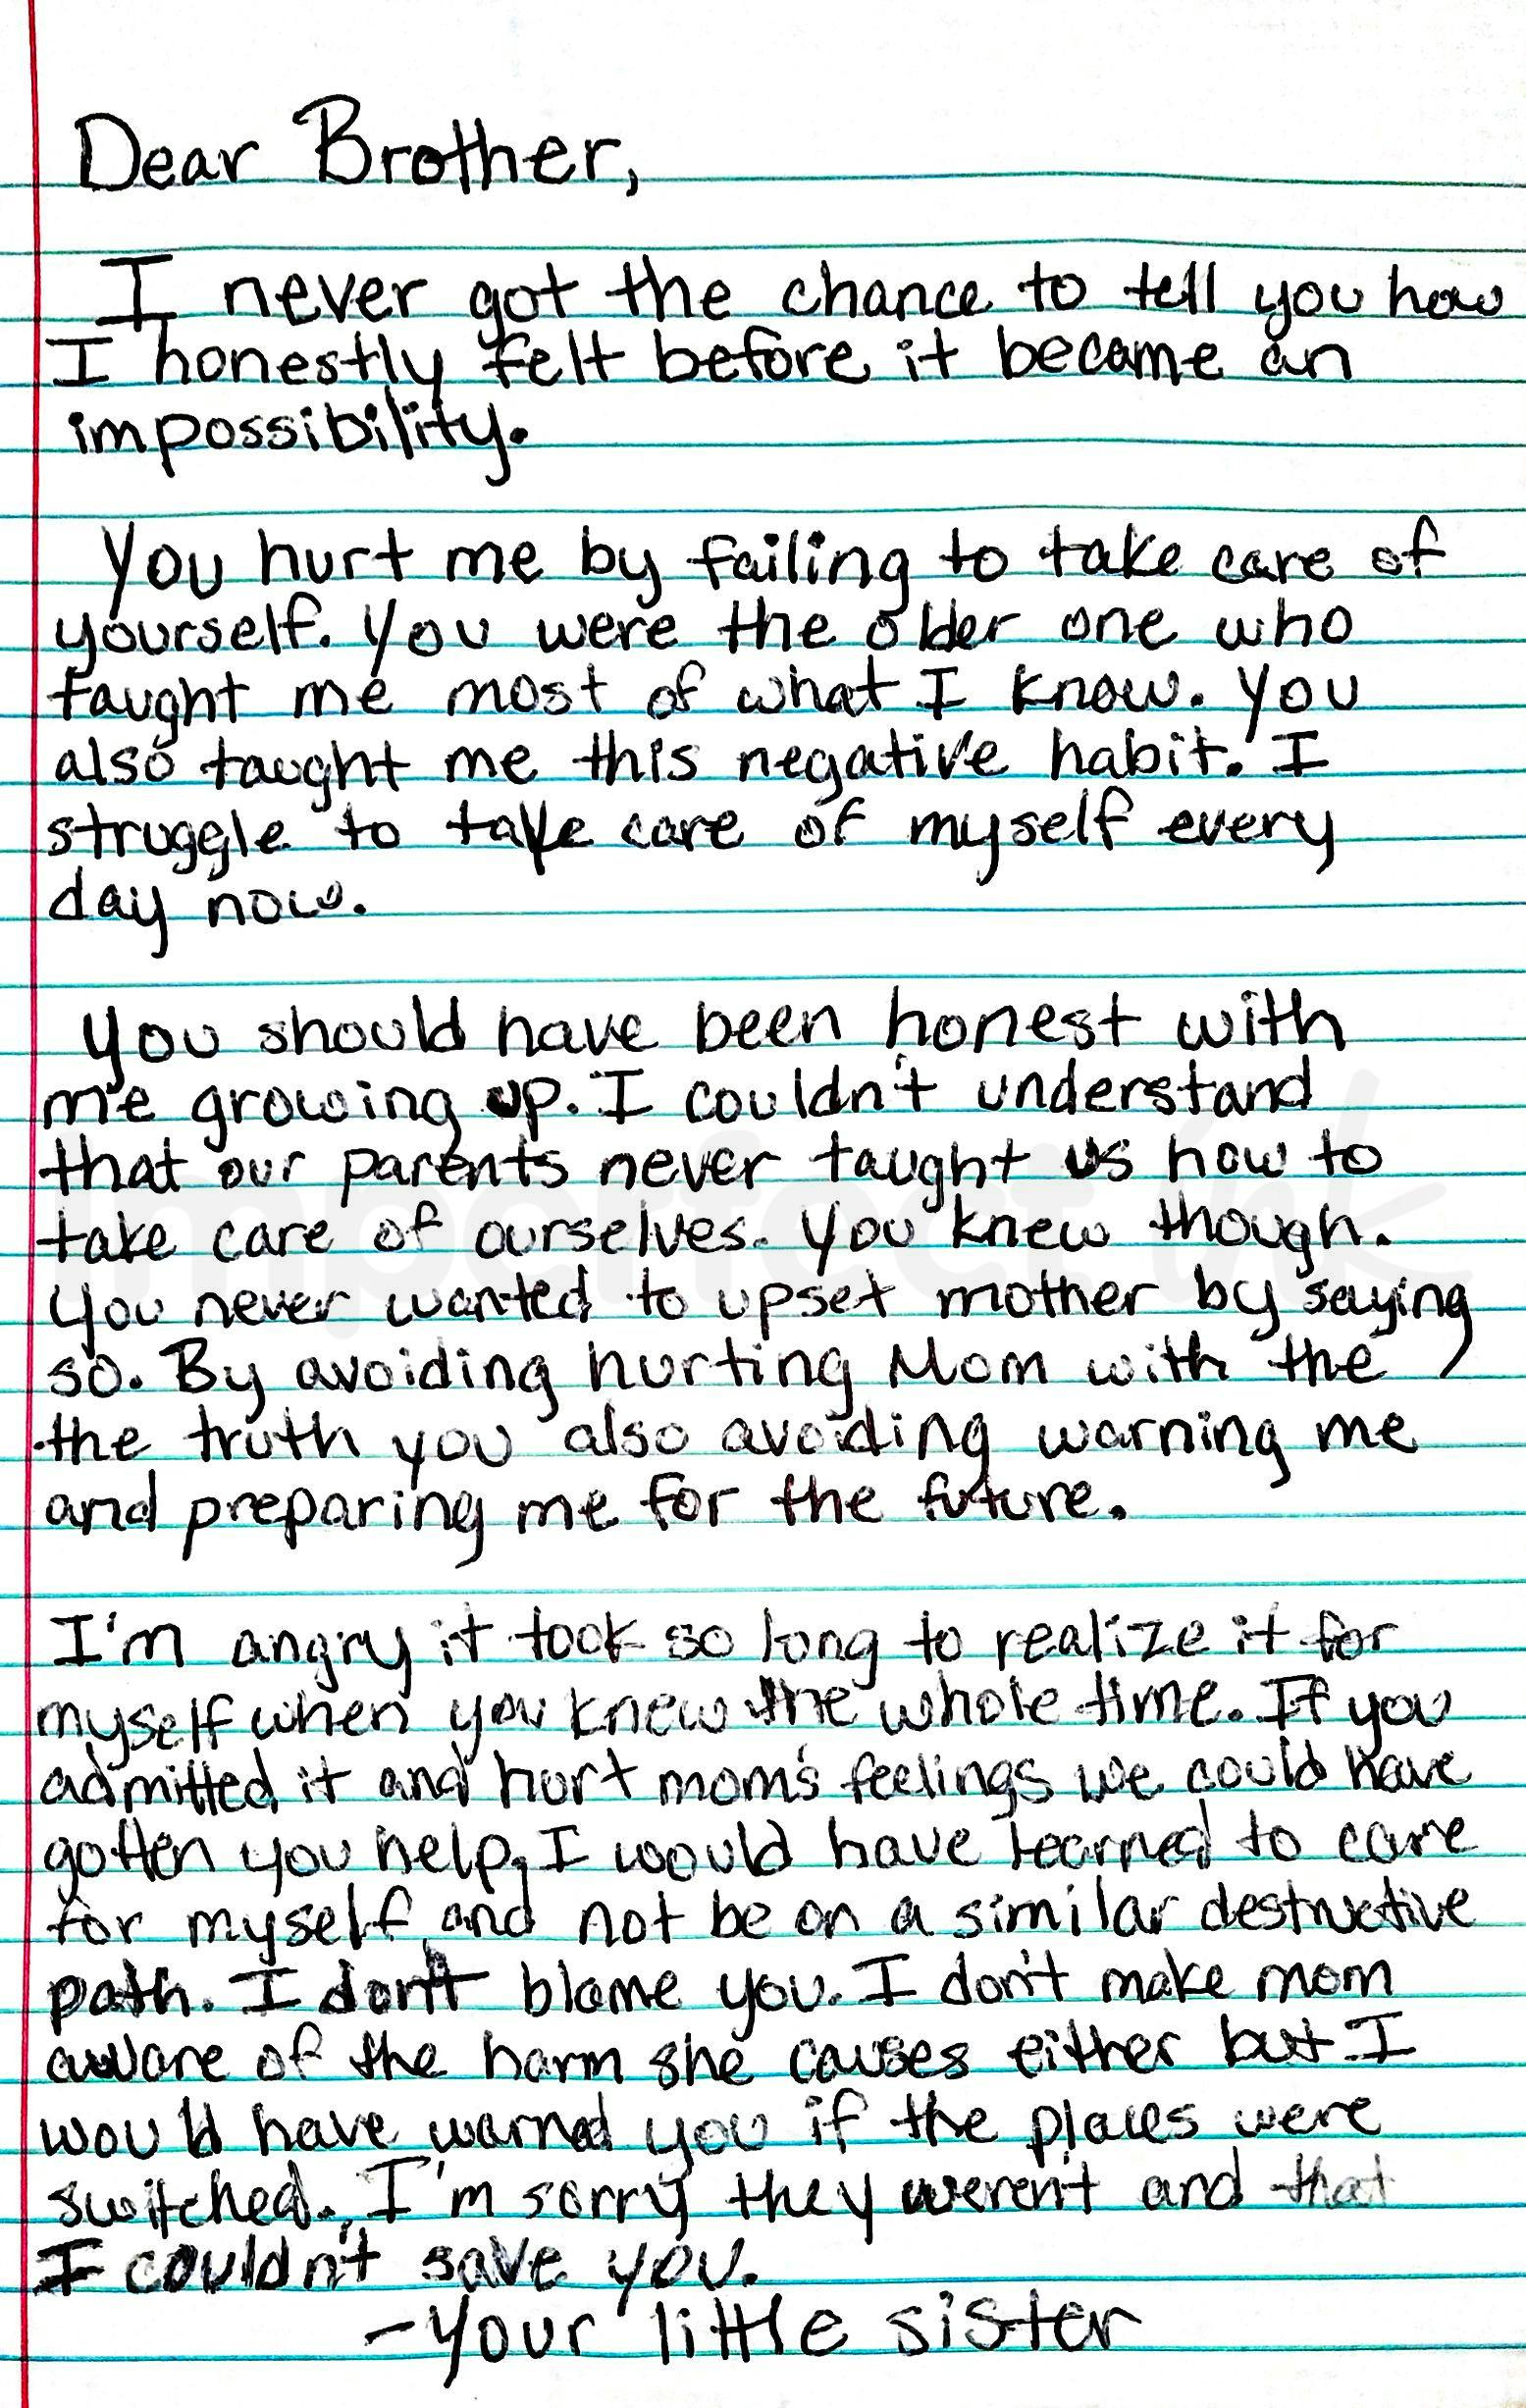 Dear Brother,
I never got the chance to tell you how
I honestly felt before it became an
impossibility.
You hurt me by failing to take care of
yourself. You were the older one who
taught me most of what I know. You
also taught me this negative habit. I
struggle to take care of myself every
day now.
You should have been honest with
me growing up. I couldn't understand
that our parents never taught us how to
take care of ourselves. You knew though.
You never wanted to upset mother by saying
so. By avoiding hurting Mom with the
the truth you also avoiding warning me
and preparing me for the future.
I'm angry it took so long to realize it for
myself when you knew the whole time. If you
admitted it and hurt mom's feelings we could have
gotten you help, I would have learned to care
for myself, and not be on a similar destructive
path. I don't blame you. I don't make mom
aware of the harm she causes either but I
would have warned you if the places were
switched. I'm sorry they weren't and that
I couldn't save you.
-Your little sister